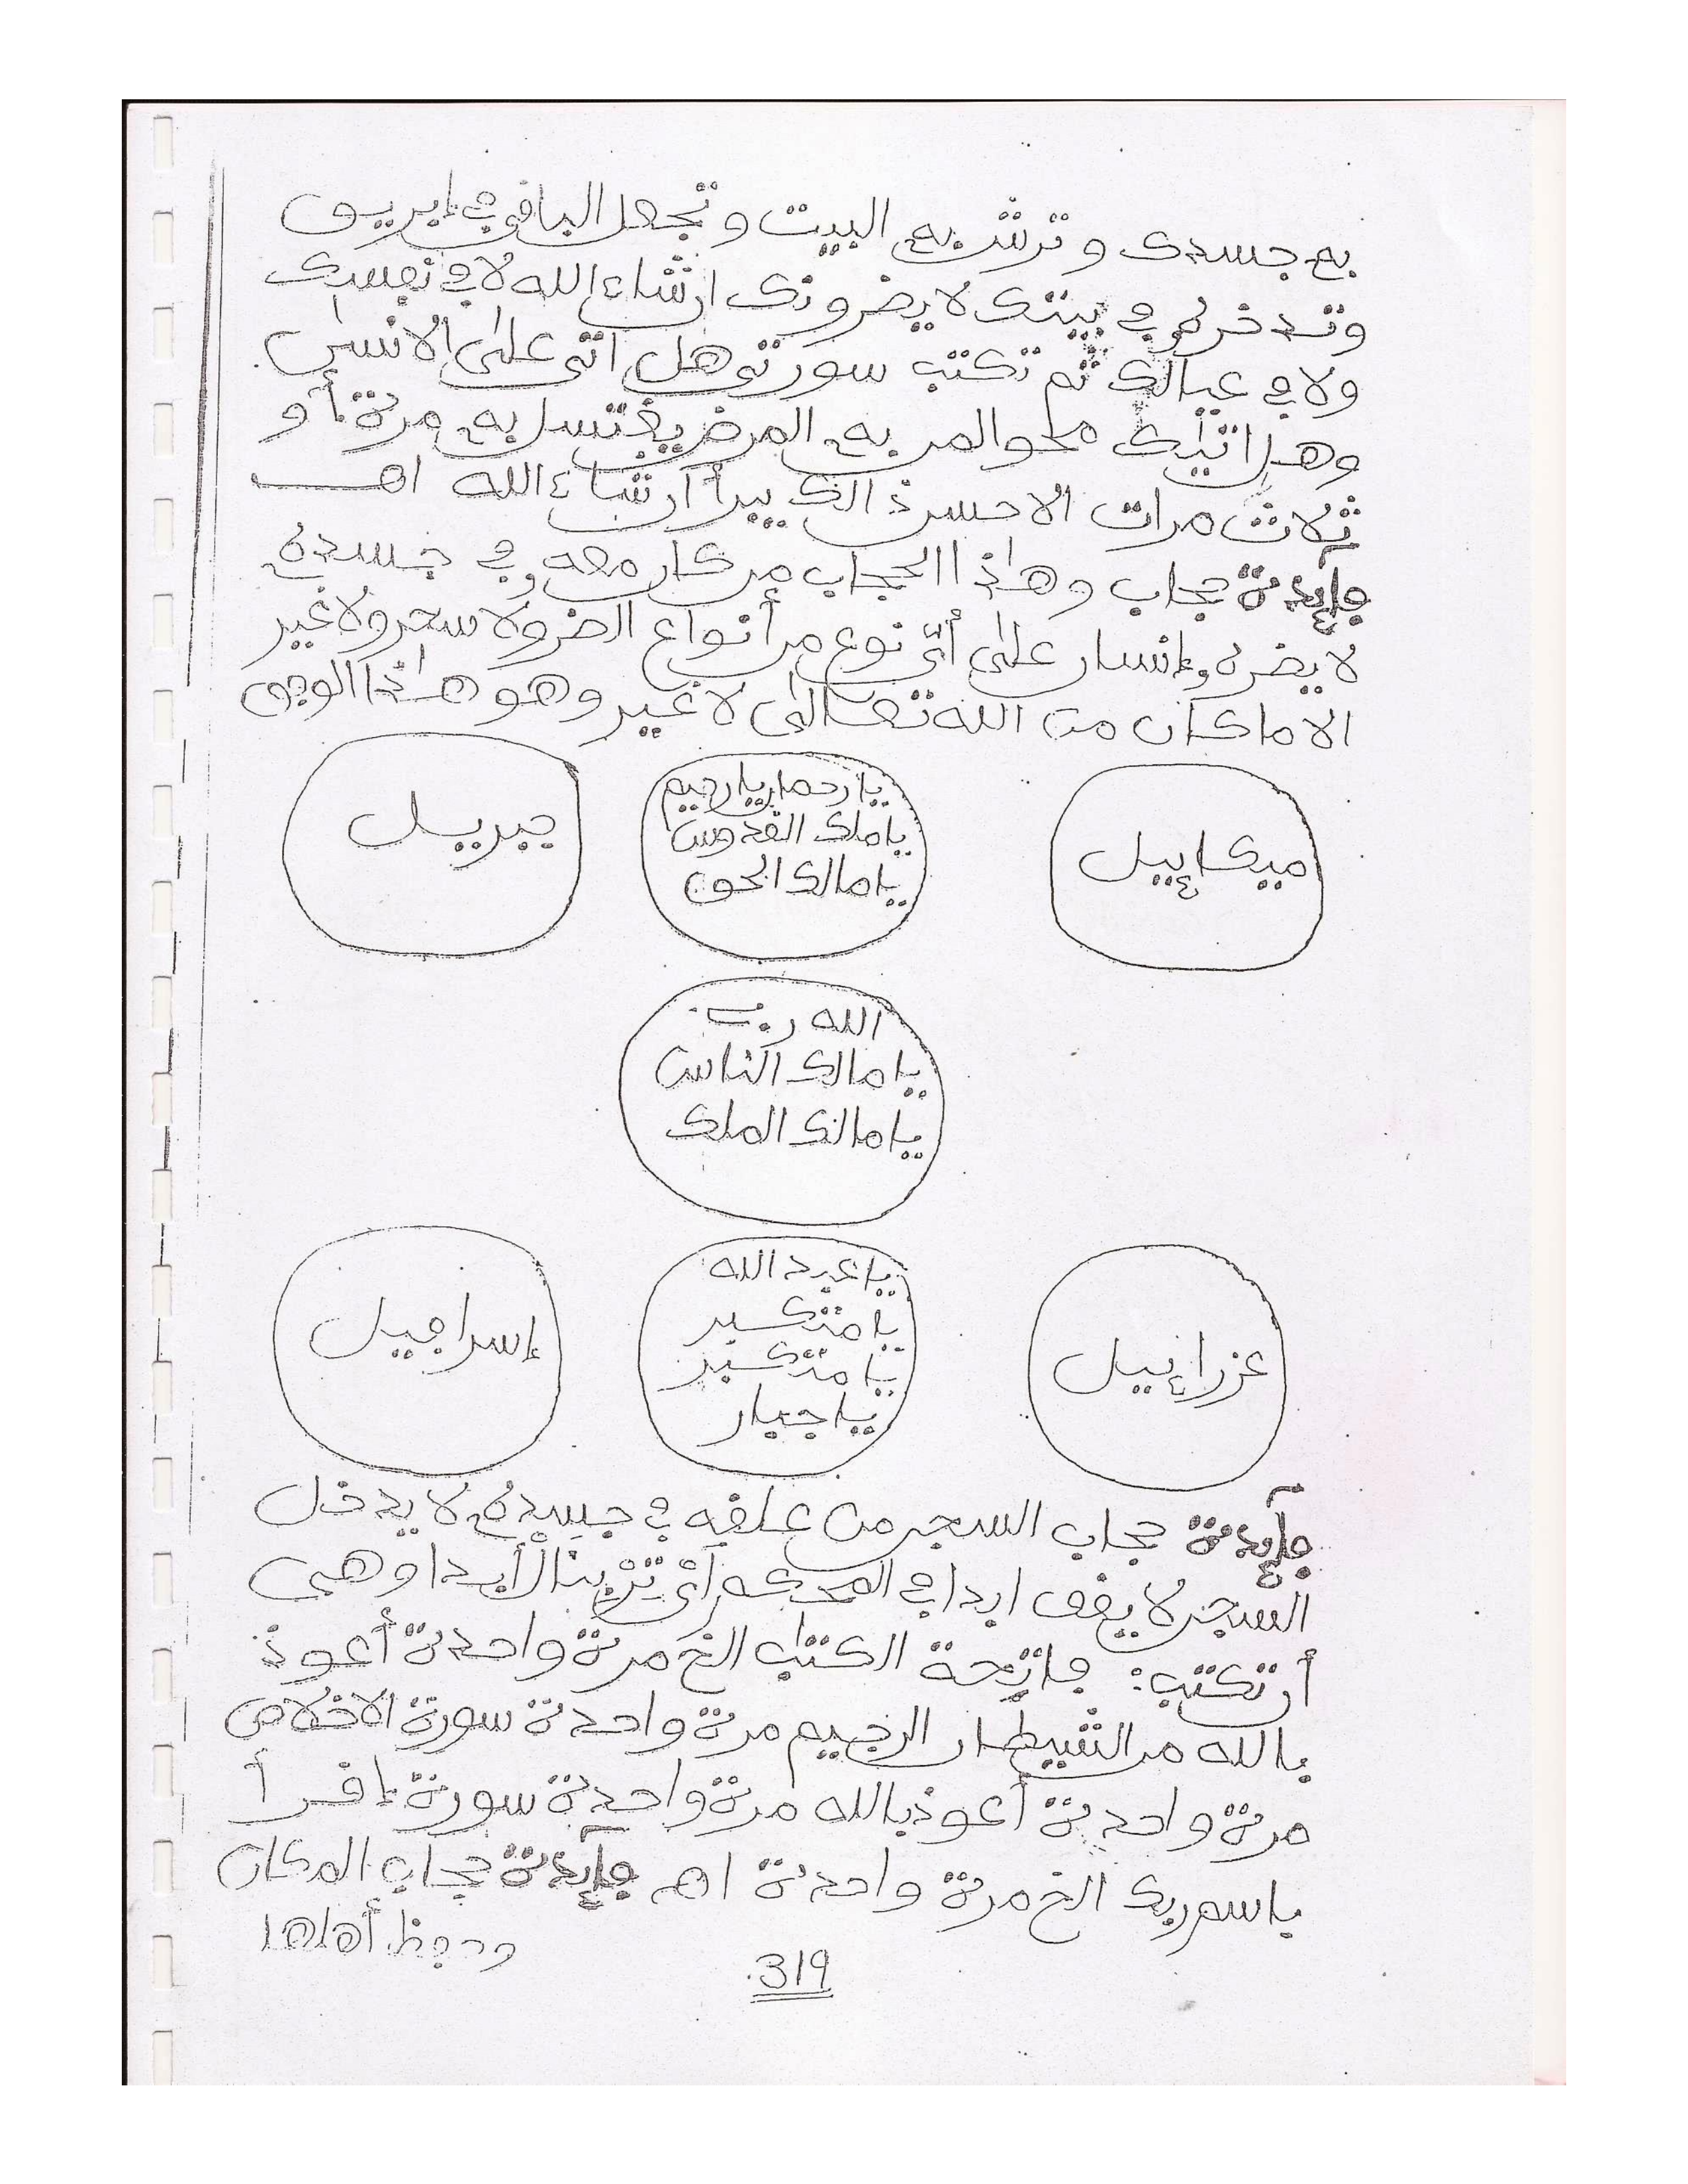 به جسدك وترش به البيت وتجعل الباقي في إبريق
وتدخره في بيتك لا يضرونك ان شاء الله لا في نفسك
ولا في عيالك ثم تكتب سورتي هل اتى على الانسان
وهل اتيك محو المر به المرض يغتسل به مرة أو
ثلاث مرات الاحسن ذالك يبرأ ان شاء الله اهـ
فإيدة حجاب وهذا الحجاب من كان معه في جسده
لا يضره إنسان على أي نوع من أنواع الضر ولا سحر ولا غير
الا ما كان من الله تعالى لا غير وهو هذا الوجه
ميكاييل
يا رحمان يا رحيم
يا ملك القدوس
يا مالك الحق
جبريل
الله رب
يا مالك الناس
يا مالك الملك
عزراييل
يا عبد الله
يا متكبر
يا متكبر
يا جبار
إسرافيل
فإيدة حجاب السجن من علقه في جسده لا يدخل
السجن لا يقف ابدا في المحكم أبدا وهي
أن تكتب: فاتحة الكتب الخ مرة واحدة أعوذ
بالله من الشيطان الرجيم مرة واحدة سورة الاخلاص
مرة واحدة أعوذ بالله مرة واحدة سورة إقرأ
باسم ربك الخ مرة واحدة اهـ فإيدة حجاب المكان
وحفظ أهلها
319